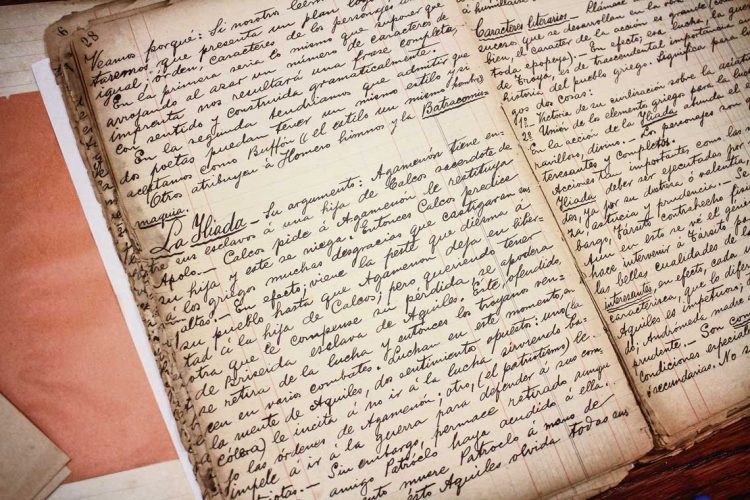 6
28
Veamos porqué: Si nuestro
taremos que presenta un plan
igual; orden, caracteres de los personajes
En la primera sería lo mismo que suponer que
arrojando al azar un número de caracteres de
imprenta nos resultará una frase completa,
con sentido y construida gramaticalmente.
En la segunda tendríamos que admitir que
dos poetas puedan tener un mismo estilo y si
aceptamos como Buffón (el estilo un mismo hombre)
Otros atribuyen á Homero himnos y la Batracomio
maquia.
La Yliada - Su argumento: Agamenón tiene en-
tre sus esclavos á una hija de Calcos sacerdote de
Apolo. - Calcos pide á Agamenón le restituya
su hija y este se niega. Entonces Calcos predice
á los griegos muchas desgracias que castigaran sus
faltas. - En efecto; viene la peste que diezma á
su pueblo hasta que Agamenón deja en liber-
tad á la hija de Calcos; pero queriendo tener
otra que le compense su perdida, se apodera
de Briseida esclava de Aquiles. Este, ofendido,
se retira de la lucha y entonces los troyanos ven-
cen en varios combates. Luchan en este momento, en
la mente de Aquiles, dos sentimientos opuestos: uno (la
cólera) le incita á no ir á la lucha sirviendo ba-
jo las órdenes de Agamenón; otro, (el patriotismo) le
impele á ir á la guerra para defender á sus com-
patriotas. - Sin embargo, permace retirado, aunque
amigo Patroclo haya acudido á ella.
muere Patroclo á mano de
esto Aquiles olvida todas sus
Caracteres literarios. - llámase
suceso que se desarrollan en la obra
bien, el caracter de la acción es grande (como
toda epopeya). - En efecto; esa lucha, la guerra
de Troya, es de trascendental importancia en
historia del pueblo griego. Significa para
gos dos cosas:
1ª Victoria de su civilización sobre la asiática
2ª Unión de los elemento griego para la
En la acción de la Yliada abunda el
ravilloso, divino. - Los personajes son
teresantes y Completos.
Acciones tan importante como las
Yliada deber ser ejecutadas por
dos, ya por su destreza ó valentía
za, astucia y prudencia. - Sin
bargo, Társito contrahecho
Aun en esto se vé el genio
hace intervenir á Társito
las bellas cualidades de
interesantes, en efecto, cada
caracteriza, que lo
Aquiles es impetuoso;
do; Andrómeda madre
prudente. - Son com
condiciones especiales
ó secundarias. No